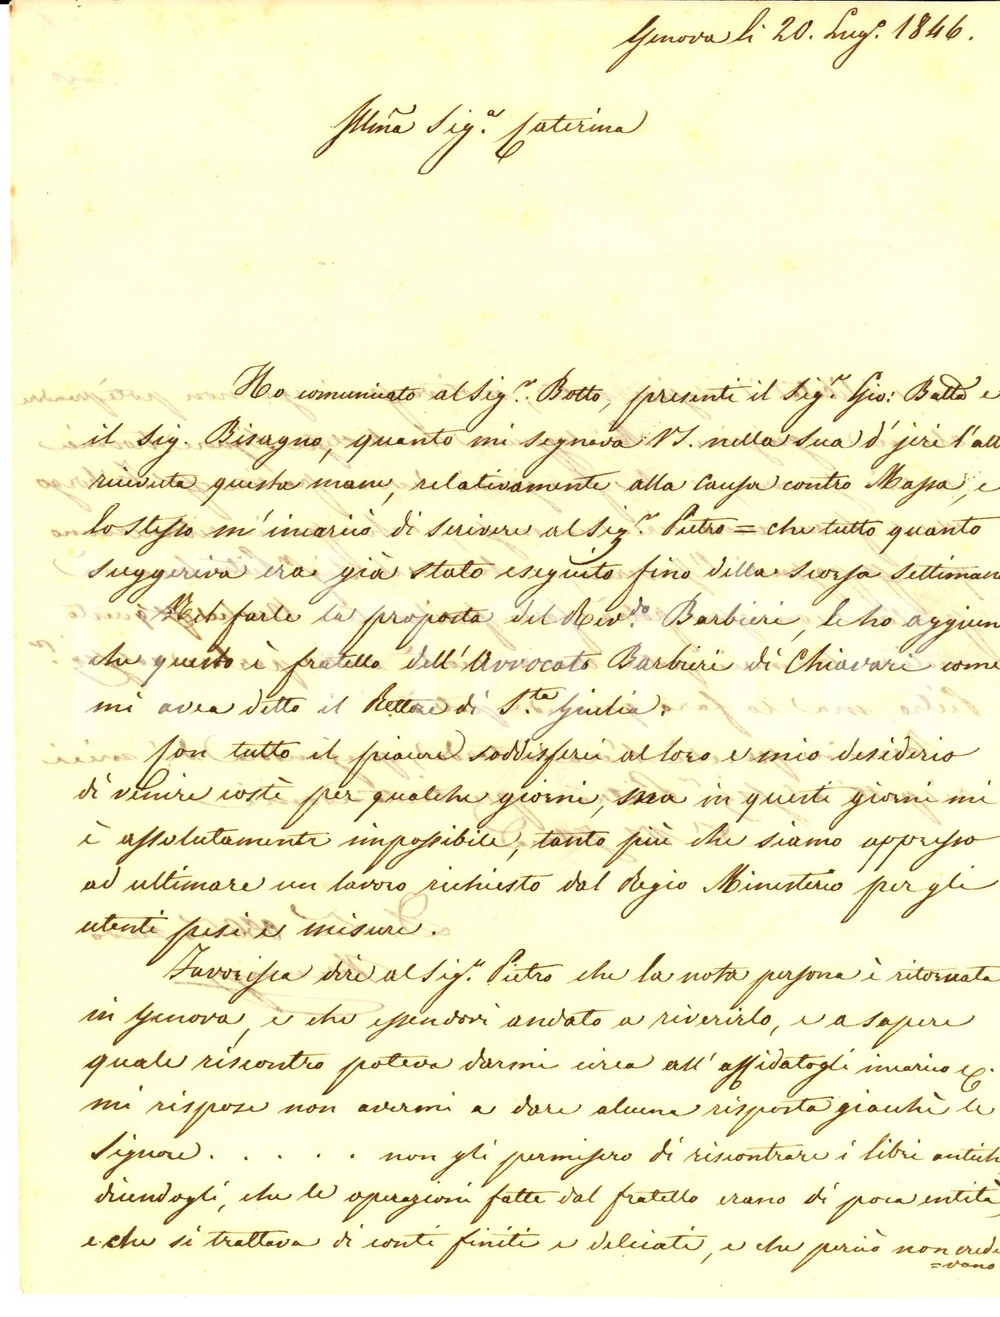 Genova li 20. Lug.° 1846.
Illma Sig.a Caterina
Ho comunicato al Sig.r Botto, presenti il Sig.r Gio: Batta e
il Sig. Bisagno, quanto mi segnava VS. nella Sua d'jeri l'alt
ricevuta questa mane, relativamente alla Causa contro Massa, e
lo stesso m'incaricò di scrivere al Sig.r Pietro = che tutto quanto
suggeriva era già stato eseguito fino della scorsa settiman
Nel farle la proposta del Rev.do Barbieri, le ho aggiun
che questo è fratello dell'Avvocato Barbieri di Chiavari come
mi avea detto il Rettore di S.ta Giulia.
Con tutto il piacere soddisferei al loro e mio desiderio
di venire costì per qualche giorni, ma in questi giorni mi
è assolutamente impossibile, tanto più che siamo appresso
ad ultimare un lavoro richiesto dal Regio Ministerio per gli
utenti pesi e misure.
Favorisca dire al Sig.r Pietro che la nota persona è ritornata
in Genova, e che essendovi andato a riverirlo, e a sapere
quale riscontro poteva darmi circa all'affidatogli incarico &.
mi rispose non avermi a dare alcuna risposta giacchè le
Signore . . . . . non gli permisero di riscontrare i libri antich
dicendogli, che le operazioni fatte dal fratello erano di poca entità,
e che si trattava di conti finiti e delicati, e che perciò non crede
=vano